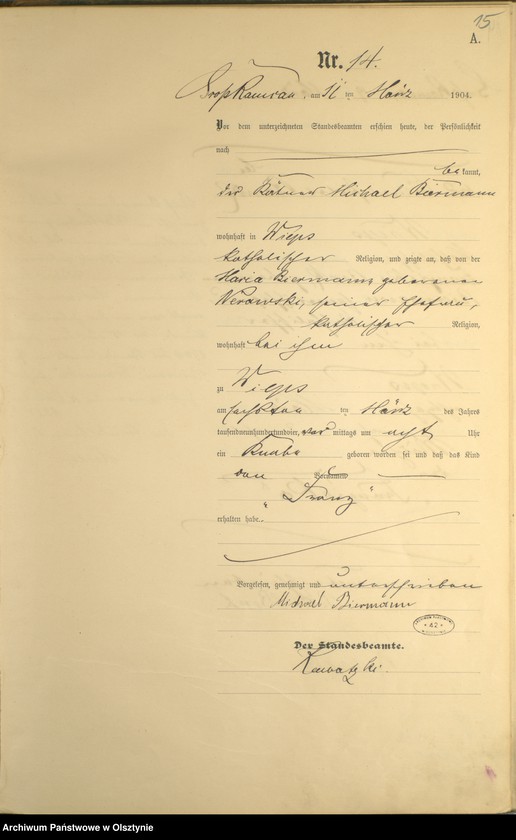 15
A.
Nr. 14.
Groß Ramsau am 11 ten März 1904.
Vor dem unterzeichneten Standesbeamten erschien heute, der Persönlichkeit
nach
bekannt,
der Kätner Michael Biermann
wohnhaft in Wieps
katholischer Religion, und zeigte an, daß von der
Maria Biermann geborenen
Werowski, seiner Ehefrau,
katholischer Religion,
wohnhaft bei ihm
zu Wieps
am ten März des Jahres
tausendneunhundertundvier, vor mittags um acht Uhr
ein Knabe geboren worden sei und daß das Kind
den Vornamen
"Franz"
erhalten habe.
Vorgelesen, genehmigt und unterschrieben
Michael Biermann
42
Der Standesbeamte.
Archiwum Państwowe w Olsztynie